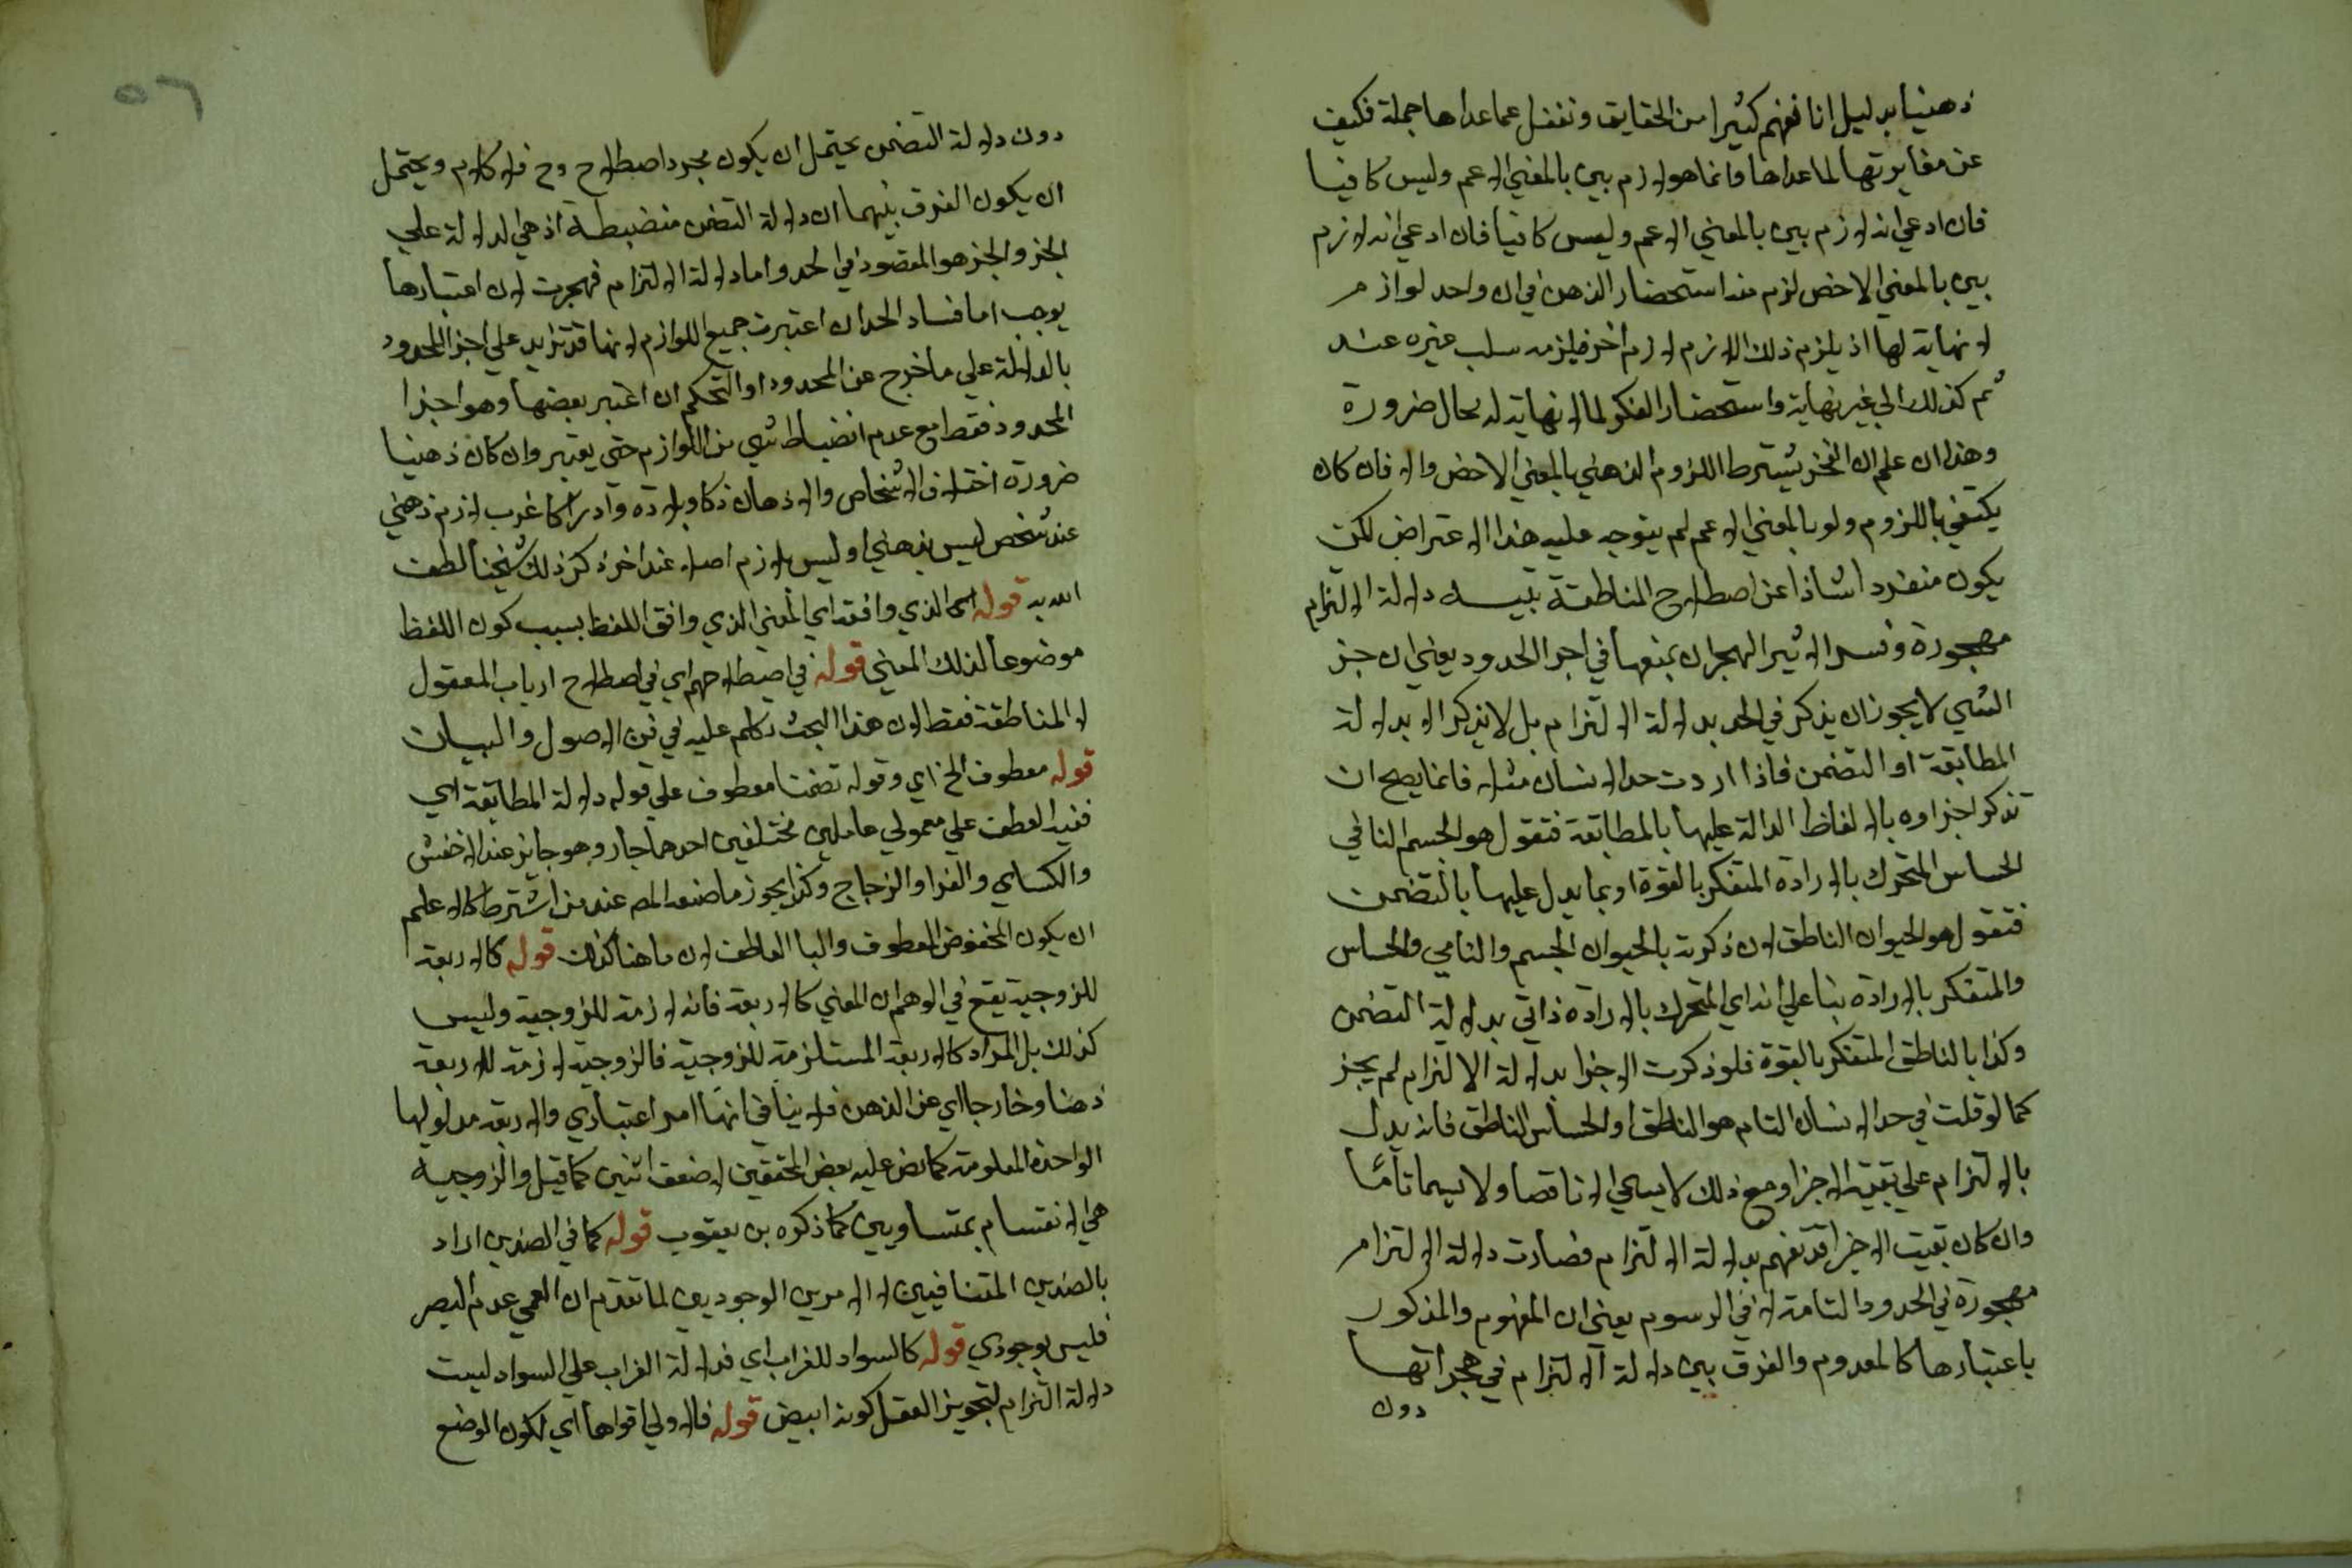 ذهنيا بدليل انا نفهم كثيرا من الحقايق ونغفل عما عداها جملة فكيف
عن مغايرتها لما عداها وانما هو لازم بين بالمعني الاعم وليس كافيا
فان ادعي انه لازم بين بالمعني الاعم وليس كافيا فان ادعي انه لازم
بين بالمعني الاخص لزم منه استحضار الذهن في ان واحد لوازم
لا نهاية لها اذ يلزم ذلك اللازم لازم اخر فيلزمه سلب غيره عنه
ثم كذلك الي غير نهاية واستحضار الفكر لما لا نهاية له محال ضرورة
وهذا ان علم ان الفخر يشترط اللزوم الذهني بالمعني الاخص والا فان كان
يكتفي باللزوم ولو بالمعني الاعم لم يتوجه عليه هذا الاعتراض لكن
يكون منفردا شاذا عن اصطلاح المناطقة تنبيه دلالة الالتزام
مهجورة وفسر الاثير الهجران بمنعها في اجزا الحدود يعني ان جز
الشي لا يجوز ان يذكر في الحد بدلالة الالتزام بل لا يذكر الا بدلالة
المطابقة او التضمن فاذا اردت حد الانسان مثلا فانما يصح ان
تذكر اجزاوه بالالفاظ الدالة عليها بالمطابقة فتقول هو الجسم النامي
الحساس المتحرك بالارادة المتفكر بالقوة او بما يدل عليها بالتضمن
فتقول هو الحيوان الناطق لان ذكرت بالحيوان الجسم والنامي والحساس
والمتفكر بالارادة بنا علي انه اي المتحرك بالارادة ذاتي بدلالة التضمن
وكذا بالناطق المتفكر بالقوة فلو ذكرت الاجزا بدلالة الالتزام لم يجز
كما لو قلت في حد الانسان التام هو الناطق او الحساس الناطق فانه يدل
بالالتزام علي بقية الاجزا ومع ذلك لا يسمي الا ناقصا ولا يسما تاما
وان كان بقيت الاجزا قد تفهم بدلالة الالتزام فصارت دلالة الالتزام
مهجورة في الحدود التامة لا في الرسوم يعني ان المفهوم والمذكور
باعتبارها كالمعدوم والفرق بين دلالة الالتزام في هجرانها
دون
٥٦
دون دلالة التضمن يحتمل ان يكون مجرد اصطلاح وح فلا كلام ويحتمل
ان يكون الفرق بينهما ان دلالة التضمن منضبطة اذ هي الدلالة علي
الجز والجز هو المقصود في الحد واما دلالة الالتزام فهجرت لان اعتبارها
يوجب اما فساد الحد ان اعتبرت جميع اللوازم لانها قد تزيد علي اجزا المحدود
بالدلالة علي ما خرج عن المحدود او التحكم ان اعتبر بعضها وهو اجزا
المحدود فقط مع عدم انضباط شي من اللوازم حتي يعتبر وان كان ذهنيا
ضرورة اختلاف الاشخاص والاذهان ذكا وبلادة وادراكا فرب لازم ذهني
عند شخص ليس بذهني او ليس بلازم اصلا عند اخر ذكر ذلك شيخنا لطف
الله به قوله اي الذي وافقه اي المعني الذي وافق اللفظ بسبب كون اللفظ
موضوعا لذلك المعني قوله في اصطلاحهم اي في اصطلاح ارباب المعقول
لا المناطقة فقط لان هذا البحث تكلم عليه في فن الاصول والبيان
قوله معطوف الخ اي وقوله تضمنا معطوف علي قوله دلالة المطابقة اي
ففيه العطف علي معمولي عاملين مختلفين احدهما جار وهو جايز عند الاخفش
والكساي والفرا والزجاج وكذا يجوز ما صنعه المص عند من اشترط كالاعلم
ان يكون المخفوض المعطوف واليا العاطف لان ما هنا كذلك قوله كالاربعة
للزوجية يقع في الوهم ان المعني كالاربعة فانه لازمة للزوجية وليس
كذلك بل المراد كالاربعة المستلزمة للزوجية فالزوجية لازمة للاربعة
ذهنا وخارجا اي عن الذهن فلا ينافي انها امر اعتباري والاربعة مدلولها
الواحدة المعلومة كما نص عليه بعض المحققين لا ضعف اثنين كما قيل والزوجية
هي الانقسام بمتساويين كما ذكره بن يعقوب قوله كما في الضدين اراد
بالضدين المتنافيين لا الامرين الوجوديين لما تقدم ان العمي عدم البصر
فليس بوجودي قوله كالسواد للغراب اي فدلالة الغراب علي السواد ليست
دلالة التزام لتجويز العقل كونه ابيض قوله فالاولي اقواها اي لكون الوضع